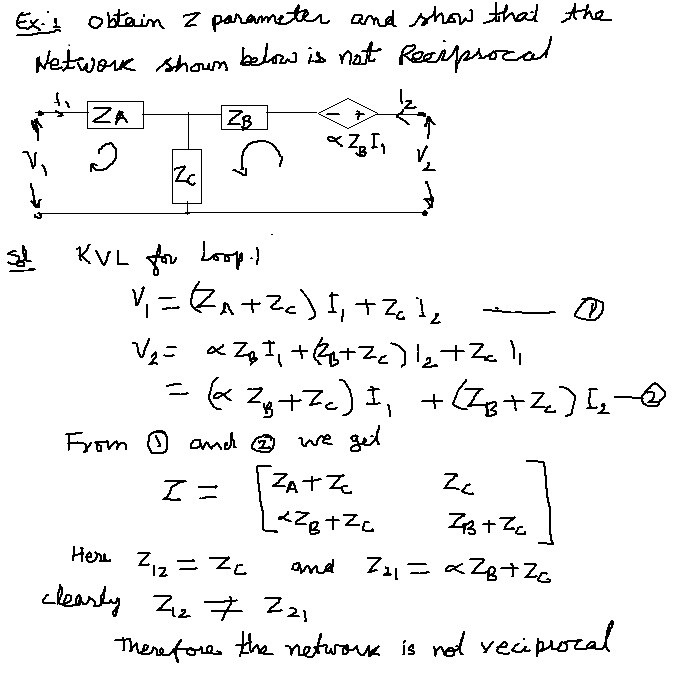 Ex:1 Obtain Z parameter and show that the
Network shown below is not Reciprocal
I₁ ZA ZB - + I₂
αZBI₁
V₁ ZC V₂
Sol KVL for Loop.1
V₁ = (ZA+ZC) I₁ + ZC I₂ —— ①
V₂ = αZBI₁ + (ZB+ZC) I₂ + ZC I₁
= (αZB+ZC) I₁ + (ZB+ZC) I₂ — ②
From ① and ② we get
Z = [ZA+ZC ZC
αZB+ZC ZB+ZC]
Here Z₁₂ = ZC and Z₂₁ = αZB+ZC
clearly Z₁₂ ≠ Z₂₁
Therefore the network is not reciprocal